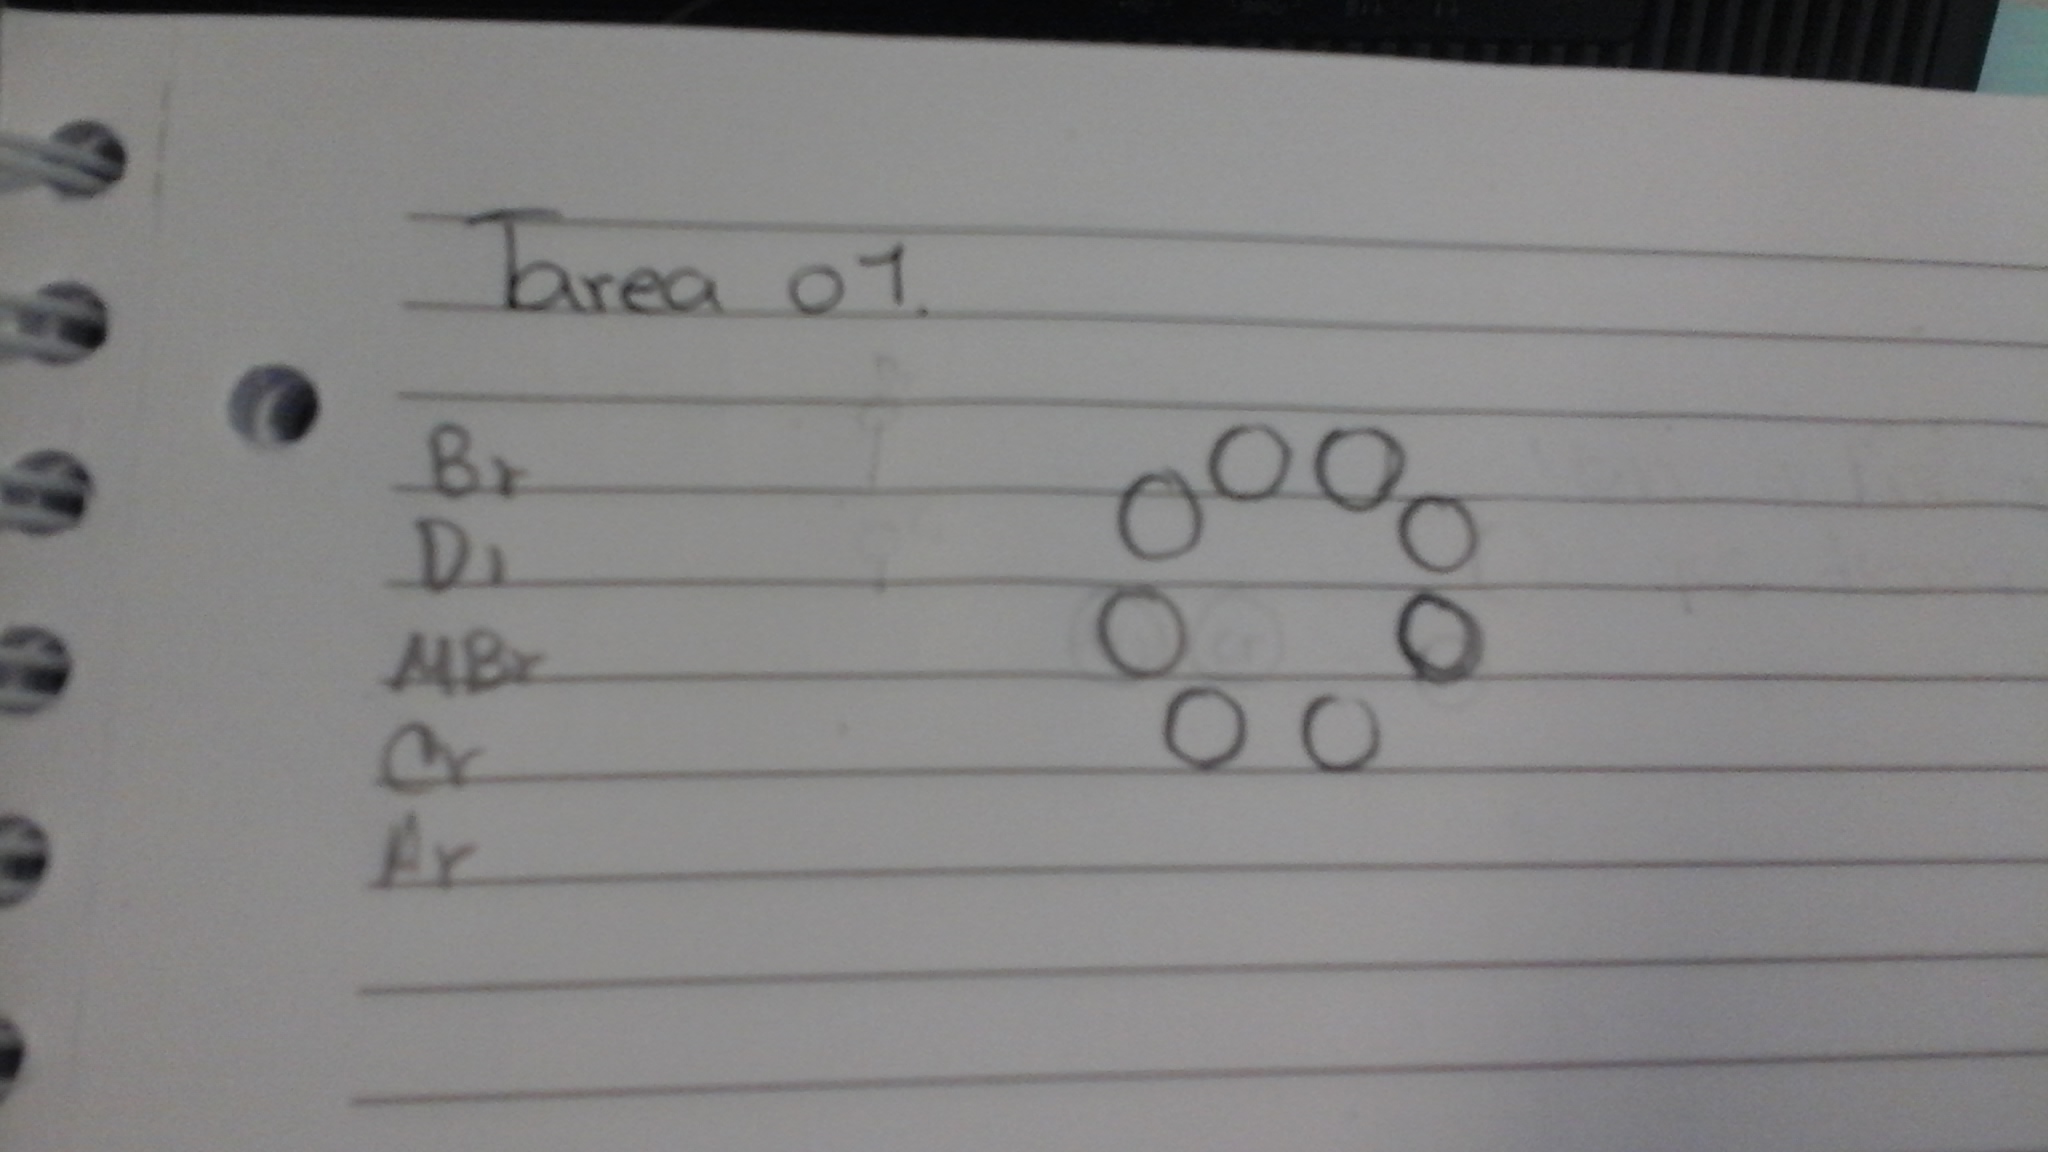 Tarea 01.
Br
Di
MBr
Cr
Ar